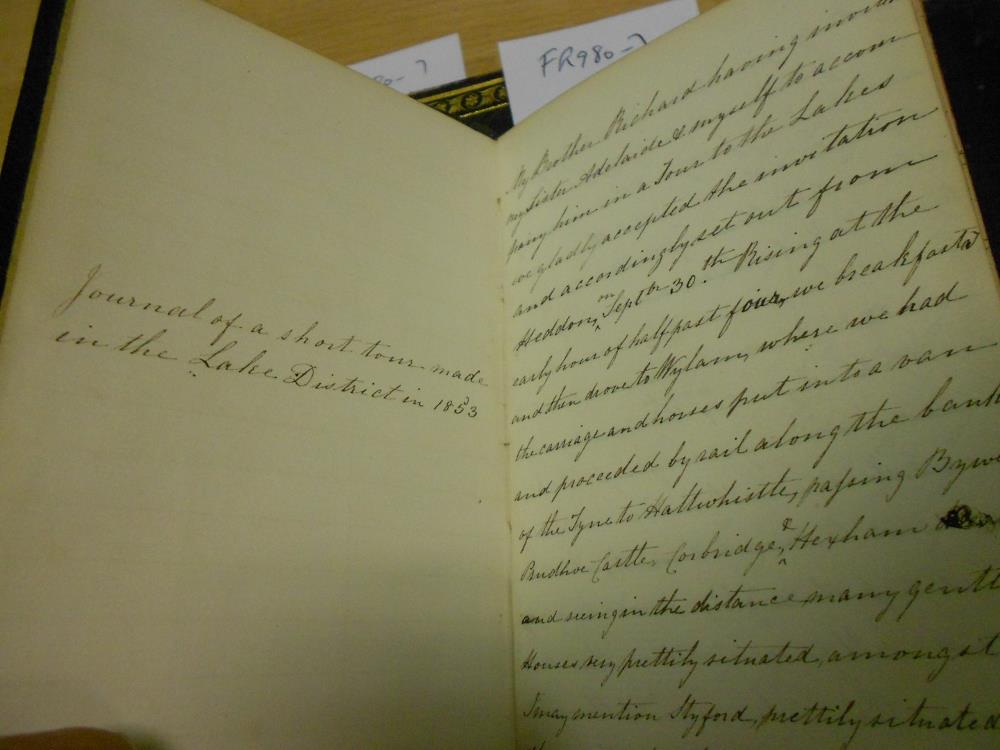 80-7
FR980-7
Journal of a short tour made
in the Lake District in 1853
My Brother Richard having
my Sister Adelaide & myself to accom
pany him in a Tour to the Lakes
we gladly accepted the invitation
and accordingly set out from
Heddon, on Septbr 30.th Rising at the
early hour of half past four, we breakfastd
and then drove to Wylam, where we had
the carriage and horses put into a van
and proceeded by rail along the bank
of the Tyne to Haltwhistle, passing Bywe
Prudhoe Castle, Corbridge, & Hexham
and seeing in the distance many gentl
Houses very prettily situated, amongst
I may mention Styford, prettily situated